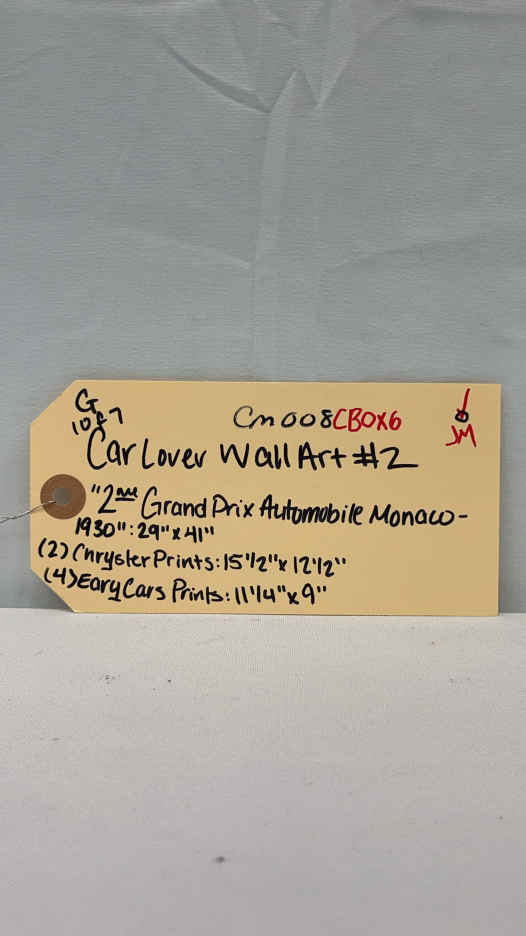 G
1 of 7
Cm008CBOX6
JM
Car Lover Wall Art #2
"2me Grand Prix Automobile Monaco-
1930": 29" x 41"
(2) Chryster Prints: 15 1/2" x 12 1/2"
(4) Eary Cars Prints: 11 1/4" x 9"